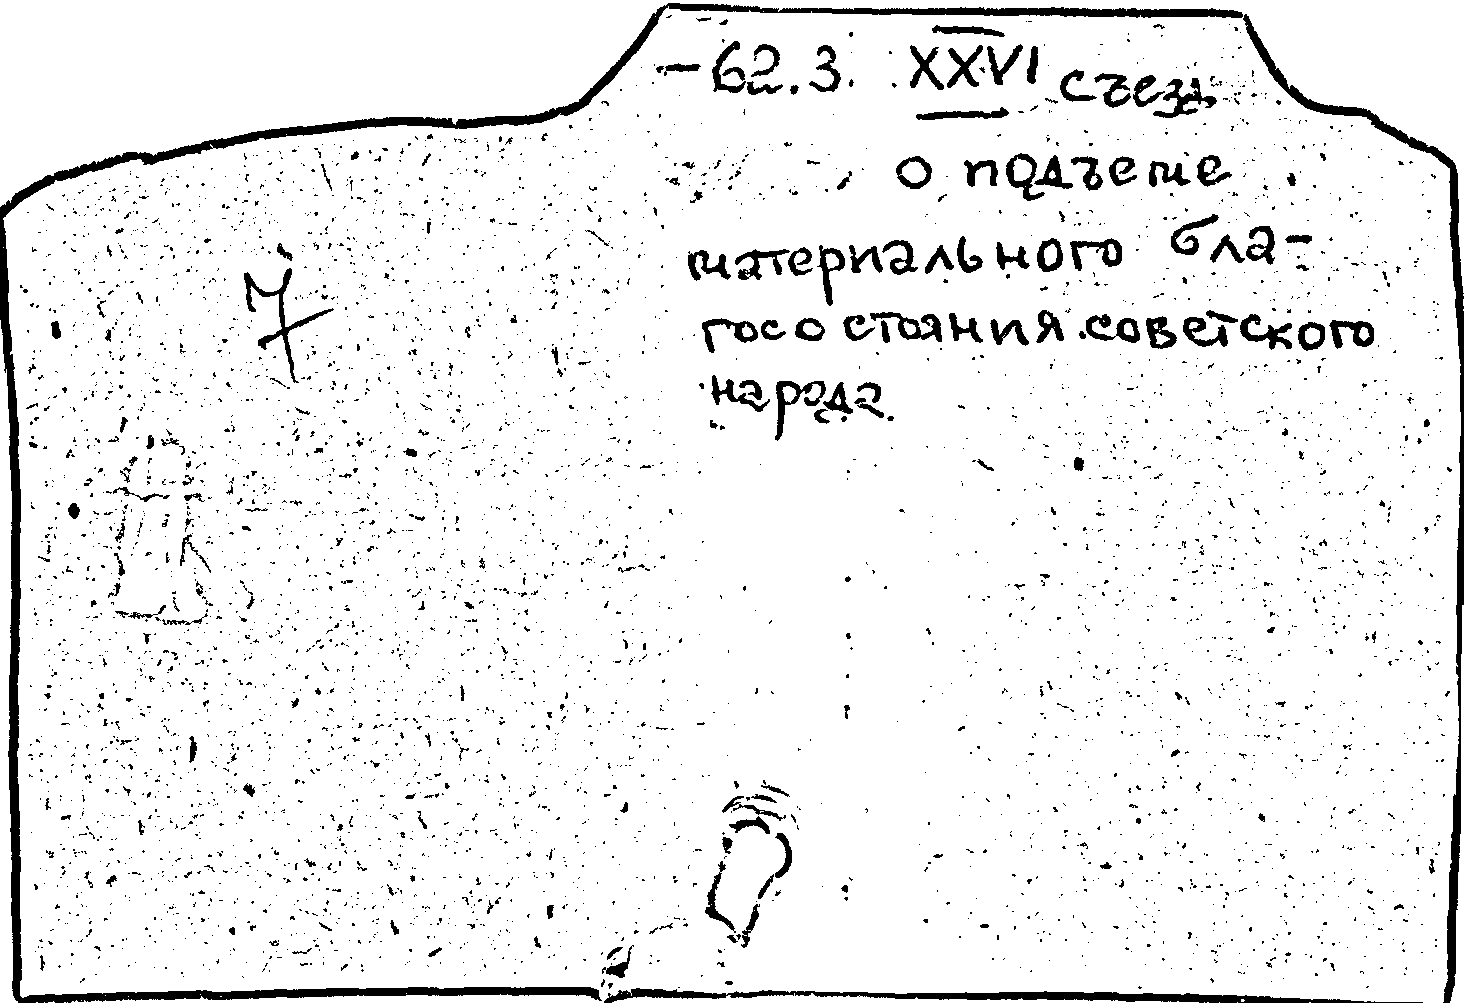 -62.3. XXVI съезд
о подъеме
материального бла-
госостояния советского
народа.
7